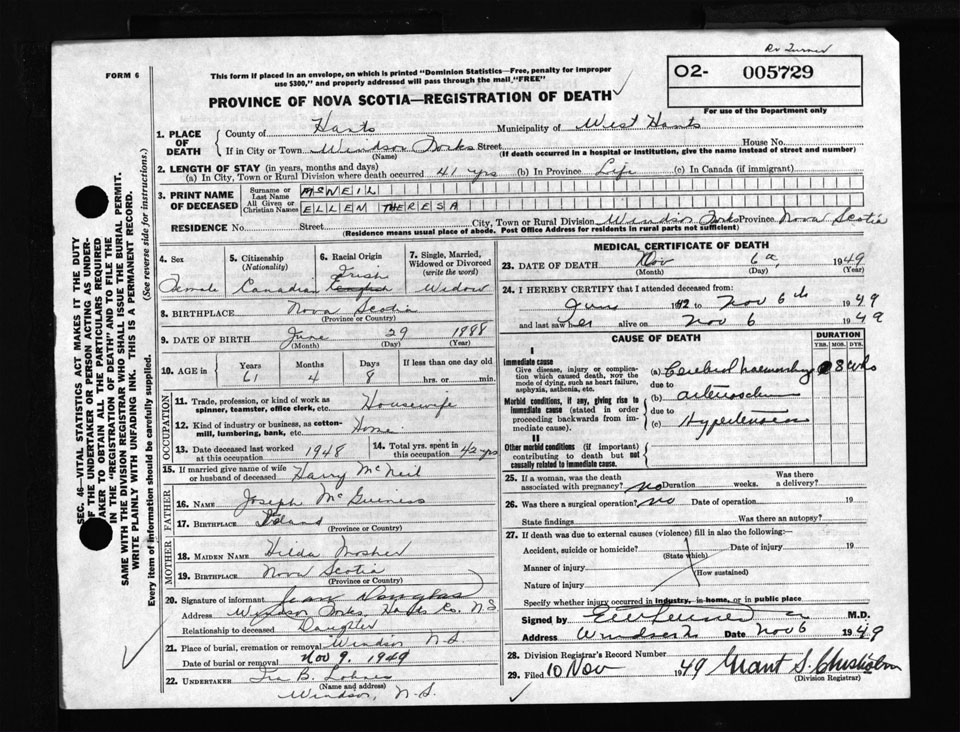 Rv Turner
FORM 6
This form if placed in an envelope, on which is printed "Dominion Statistics—Free, penalty for improper
use $300," and properly addressed will pass through the mail "FREE"
O2- 005729
For use of the Department only
PROVINCE OF NOVA SCOTIA—REGISTRATION OF DEATH
1. PLACE OF DEATH County of Hants Municipality of West Hants
If in City or Town Windsor Forks Street House No.
(Name) (If death occurred in a hospital or institution, give the name instead of street and number)
2. LENGTH OF STAY (in years, months and days)
(a) In City, Town or Rural Division where death occurred 41 yrs (b) In Province Life (c) In Canada (if immigrant)
3. PRINT NAME OF DECEASED Surname or Last Name McNEIL
All Given or Christian Names ELLEN THERESA
RESIDENCE No. Street City, Town or Rural Division Windsor Forks Province Nova Scotia
(Residence means usual place of abode. Post Office Address for residents in rural parts not sufficient)
4. Sex Female
5. Citizenship (Nationality) Canadian
6. Racial Origin Irish English
7. Single, Married, Widowed or Divorced (write the word) Widow
8. BIRTHPLACE Nova Scotia
(Province or Country)
9. DATE OF BIRTH June 29 1888
(Month) (Day) (Year)
10. AGE in Years 61 Months 4 Days 8 If less than one day old
hrs. or min.
OCCUPATION
11. Trade, profession, or kind of work as spinner, teamster, office clerk, etc. Housewife
12. Kind of industry or business, as cotton-mill, lumbering, bank, etc. Home
13. Date deceased last worked at this occupation 1948
14. Total yrs. spent in this occupation 42 yrs
15. If married give name of wife or husband of deceased Harry McNeil
FATHER
16. NAME Joseph McGuiness
17. BIRTHPLACE
(Province or Country)
MOTHER
18. MAIDEN NAME Hilda Mosher
19. BIRTHPLACE Nova Scotia
(Province or Country)
20. Signature of informant Jean Douglas
Address Windsor Forks, Hants Co. N.S.
Relationship to deceased Daughter
21. Place of burial, cremation or removal Windsor N.S.
Date of burial or removal Nov 9. 1949
22. UNDERTAKER Ira B.
(Name and address)
Windsor, N.S.
MEDICAL CERTIFICATE OF DEATH
23. DATE OF DEATH Nov 6 1949
(Month) (Day) (Year)
24. I HEREBY CERTIFY that I attended deceased from:
to Nov 6th 1949
and last saw her alive on Nov 6 1949
CAUSE OF DEATH
DURATION
YRS. MOS. DYS.
I
Immediate cause
Give disease, injury or complication which caused death, NOT the mode of dying, such as heart failure, asphyxia, asthenia, etc.
(a) Cerebral haemorrhage
due to
Morbid conditions, if any, giving rise to immediate cause (stated in order proceeding backwards from immediate cause).
(b)
due to
(c) Hypertension
II
Other morbid conditions (if important) contributing to death but not causally related to immediate cause.
25. If a woman, was the death associated with pregnancy? no Duration weeks. Was there a delivery?
26. Was there a surgical operation? no Date of operation 19
State findings Was there an autopsy?
27. If death was due to external causes (violence) fill in also the following:—
Accident, suicide or homicide? Date of injury 19
(State which)
Manner of injury
(How sustained)
Nature of injury
Specify whether injury occurred in industry, in home, or in public place
Signed by M.D.
Address Windsor Date Nov 6 1949
28. Division Registrar's Record Number
29. Filed 10 Nov 1949 Grant S. Chisholm
(Division Registrar)
SEC. 46—VITAL STATISTICS ACT MAKES IT THE DUTY
OF THE UNDERTAKER OR PERSON ACTING AS UNDER-
TAKER TO OBTAIN ALL THE PARTICULARS REQUIRED
IN THE "REGISTRATION OF DEATH" AND TO FILE THE
SAME WITH THE DIVISION REGISTRAR WHO SHALL ISSUE THE BURIAL PERMIT.
WRITE PLAINLY WITH UNFADING INK. THIS IS A PERMANENT RECORD.
Every item of information should be carefully supplied. (See reverse side for instructions.)